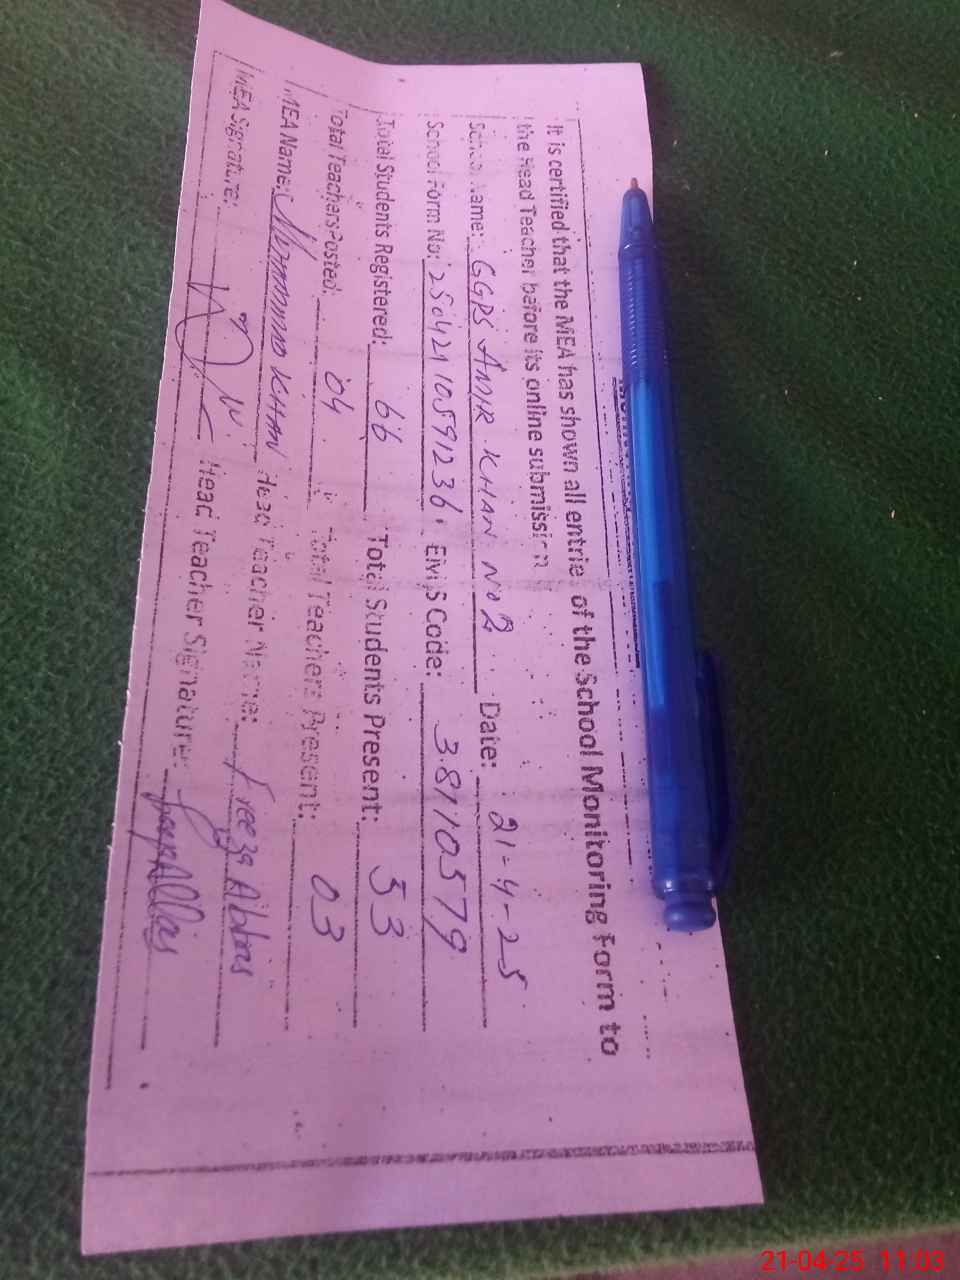 It is certified that the MEA has shown all entrie of the School Monitoring Form to
the Head Teacher before its online submission
School Name: GGPS AMIR KHAN NO 2 Date: 21-4-25
School Form No: 25042110591236 EMIS Code: 38110579
Total Students Registered: 66 Total Students Present: 53
Total Teachers Posted: 04 Total Teachers Present: 03
MEA Name: Muhammad KHAN Head Teacher Name: Feeza Abbas
MEA Signature: Head Teacher Signature:
21-04-25 11:03